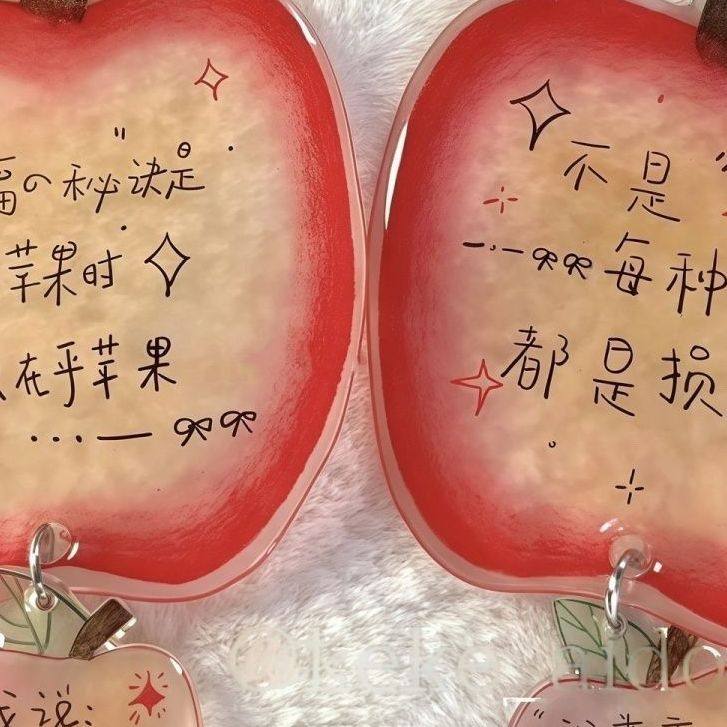 福の秘诀是
苹果时
在乎苹果
不是
每种
都是损
我说:
@keke_aido